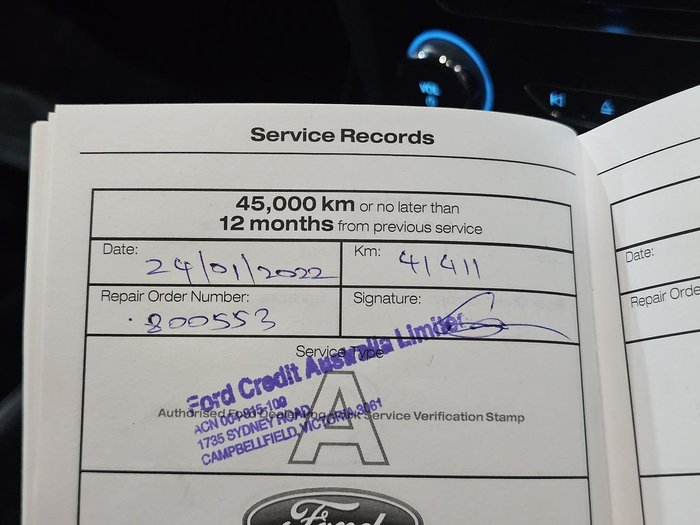 VOL
Service Records
45,000 km or no later than
12 months from previous service
Date: 24/01/2022 Km: 41411
Repair Order Number: 800553 Signature:
Service Type
Ford Credit Australia Limited
Authorised Ford Dealership Service Verification Stamp
A
ACN 004 915 109
1735 SYDNEY ROAD
CAMPBELLFIELD, VICTORIA, 3061
Ford
Date:
Repair Orde